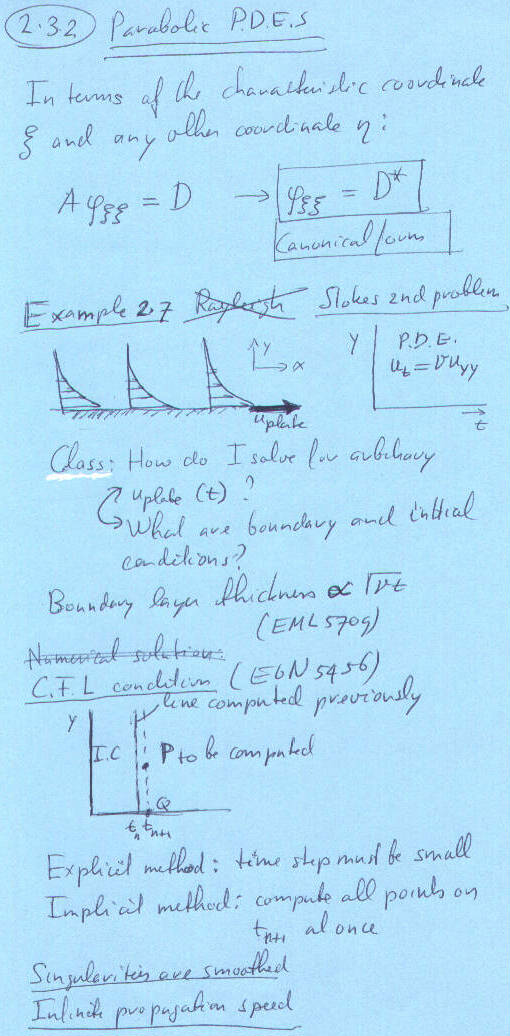 2.3.2 Parabolic P.D.E.S
In terms of the characteristic coordinate
ξ and any other coordinate η:
A φξξ = D → φξξ = D*
Canonical form
Example 2.7 Rayleigh Stokes 2nd problem
y
x
uplate
y
P.D.E.
ut = νuyy
t
Class: How do I solve for arbitrary
uplate (t) ?
What are boundary and initial
conditions?
Boundary layer thickness ∝ √νt
(EML 5709)
Numerical solution:
C.F.L condition (EGN 5456)
line computed previously
y
I.C
P to be computed
Q
tn tn+1
Explicit method: time step must be small
Implicit method: compute all points on
tn+1 at once
Singularities are smoothed
Infinite propagation speed